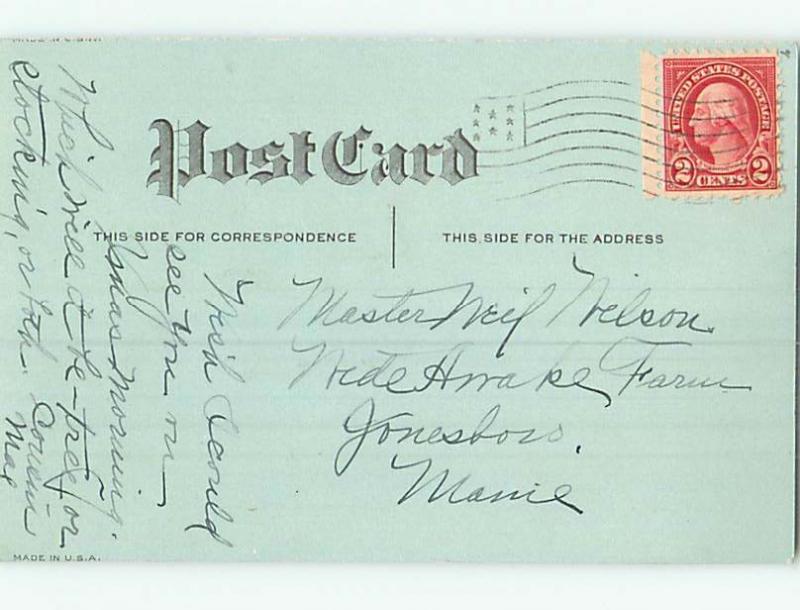 MADE IN U.S.A.
Post Card
UNITED STATES POSTAGE
2 CENTS 2
THIS SIDE FOR CORRESPONDENCE
THIS SIDE FOR THE ADDRESS
Wish I could
see you on
Xmas morning.
Which will it be - tree or
stocking, or both.
Cousin
Mae
Master Neil Wilson.
Wide Awake Farm
Jonesboro,
Maine
MADE IN U.S.A.